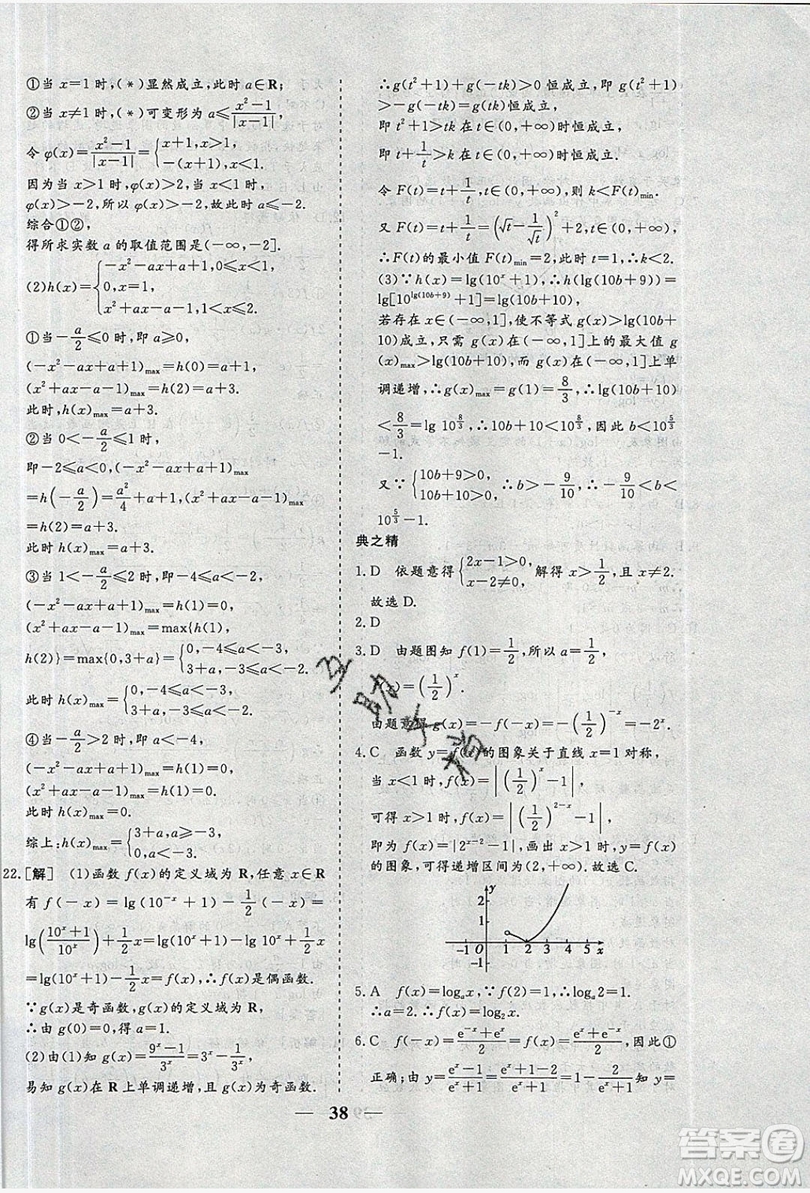 ①当 x=1 时,(*)显然成立,此时 a∈R;
②当 x≠1 时,(*)可变形为 a≤(x²-1)/|x-1|,
令 φ(x)=(x²-1)/|x-1|={x+1,x>1, -(x+1),x<1.
因为当 x>1 时,φ(x)>2,当 x<1 时,
φ(x)>-2,所以 φ(x)>-2,故此时 a≤-2.
综合①②,
得所求实数 a 的取值范围是(-∞,-2].
(2)h(x)={-x²-ax+a+1,x<1, 0,x=1, -x²+ax-a+1,x>1.
①当-a/2≤0时,即 a≥0,
(-x²-ax+a+1)max=h(0)=a+1,
(x²+ax-a-1)max=h(2)=a+3.
此时,h(x)max=a+3.
②当 0<-a/2≤1时,
即-2≤a<0,(-x²-ax+a+1)max
=h(-a/2)=a²/4+a+1,
(x²+ax-a-1)max=h(2)=a+3.
此时 h(x)max=a+3.
③当 1<-a/2≤2时,即-4≤a<-2,
(-x²-ax+a+1)max=h(1)=0,
(x²+ax-a-1)max=max{h(1),
h(2)}=max{0,3+a}={0,-4≤a<-3, 3+a,-3≤a<-2.
此时 h(x)max={0,-4≤a<-3, 3+a,-3≤a<-2.
④当-a/2>2时,即 a<-4,
(-x²-ax+a+1)max=h(1)=0,
(x²+ax-a-1)max=h(1)=0.
此时 h(x)max=0.
综上:h(x)max={3+a,a≥-3, 0,a<-3.
22.[解] (1)函数 f(x)的定义域为 R,任意 x∈R
有 f(-x)=lg(10⁻ˣ+1)-1/2(-x)=
lg((10ˣ+1)/10ˣ)+1/2x=lg(10ˣ+1)-lg 10ˣ+1/2x
=lg(10ˣ+1)-1/2x=f(x),∴f(x)是偶函数.
∵g(x)是奇函数,g(x)的定义域为 R,
∴由 g(0)=0,得 a=1.
(2)由(1)知 g(x)=(9ˣ-1)/3ˣ=3ˣ-1/3ˣ,
易知 g(x)在 R 上单调递增,且 g(x)为奇函数.
∴g(t²+1)+g(-tk)>0 恒成立,即 g(t²+1)
>-g(-tk)恒成立,
即 t²+1>tk 在 t∈(0,+∞)时恒成立,
即 t+1/t>k 在 t∈(0,+∞)时恒成立,
令 F(t)=t+1/t,t∈(0,+∞),则 k<F(t)min.
又 F(t)=t+1/t=(√t-1/√t)²+2,t∈(0,+∞),
∴F(t)的最小值 F(t)min=F(1)=2,∴k<2.
(3)∵h(x)=lg(10ˣ+1),∴h(lg(10b+9))=
lg[10^(lg(10b+9))+1]=lg(10b+10),
若存在 x∈(-∞,1],使不等式 g(x)>lg(10b+
10)成立,只需 g(x)在(-∞,1]上的最大值 g(
x)max>lg(10b+10),∵g(x)在(-∞,1]上单
调递增,∴g(x)max=g(1)=8/3,∴lg(10b+10)
<8/3=lg 10^(8/3),∴10b+10<10^(8/3),因此 b<10^(5/3)
-1.
又∵{10b+9>0, 10b+10>0,∴b>-9/10,∴-9/10<b<
10^(5/3)-1.
典之精
1.D 依题意得{2x-1>0, x-2≠0,解得 x>1/2,且 x≠2.
故选 D.
2.D
3.D 由题图知 f(1)=1/2,所以 a=1/2,
f(x)=(1/2)ˣ.
由题意得 g(x)=-f(-x)=-(1/2)⁻ˣ=-2ˣ.
4.C 函数 y=f(x)的图象关于直线 x=1 对称,
当 x<1 时,f(x)=|(1/2)ˣ-1|,
可得 x>1 时,f(x)=|(1/2)²⁻ˣ-1|,
即为 f(x)=|2ˣ⁻²-1|,画出 x>1 时,y=f(x)
的图象,可得递增区间为(2,+∞).故选 C.
y
2
1
-1 0 1 2 3 4 5 x
-1
5.A f(x)=logₐx,∵f(2)=1,∴logₐ2=1.
∴a=2.∴f(x)=log₂x.
6.C f(-x)=(e⁻ˣ+eˣ)/(eˣ+e⁻ˣ)
正确;由 y=
38
答案圈
MXQE.COM